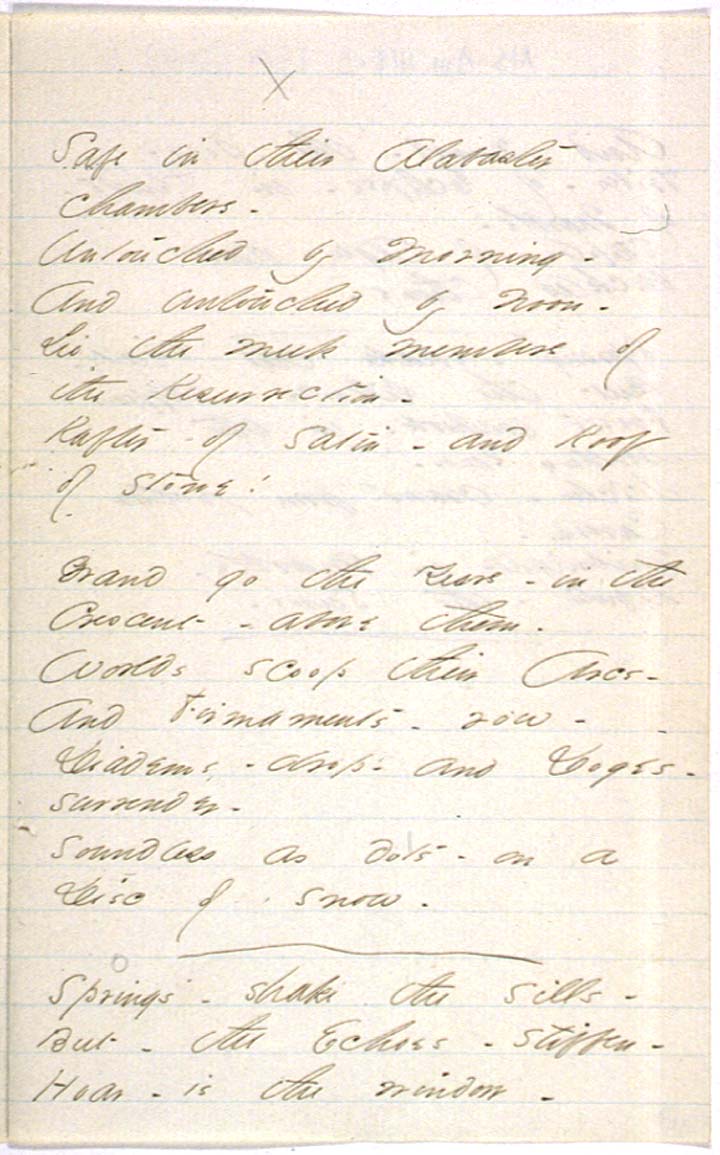 Safe in their Alabaster
chambers -
Untouched by Morning -
And untouched by Noon -
Lie the meek members of
the Resurrection -
Rafter of Satin - and Roof
of Stone!
Grand go the Years - in the
Crescent - above them -
Worlds scoop their Arcs -
And Firmaments - row -
Diadems - drop - and Doges -
surrender -
Soundless as dots - on a
Disc of snow -
Springs - shake the sills -
But - the Echoes - stiffen -
Hoar - is the window -